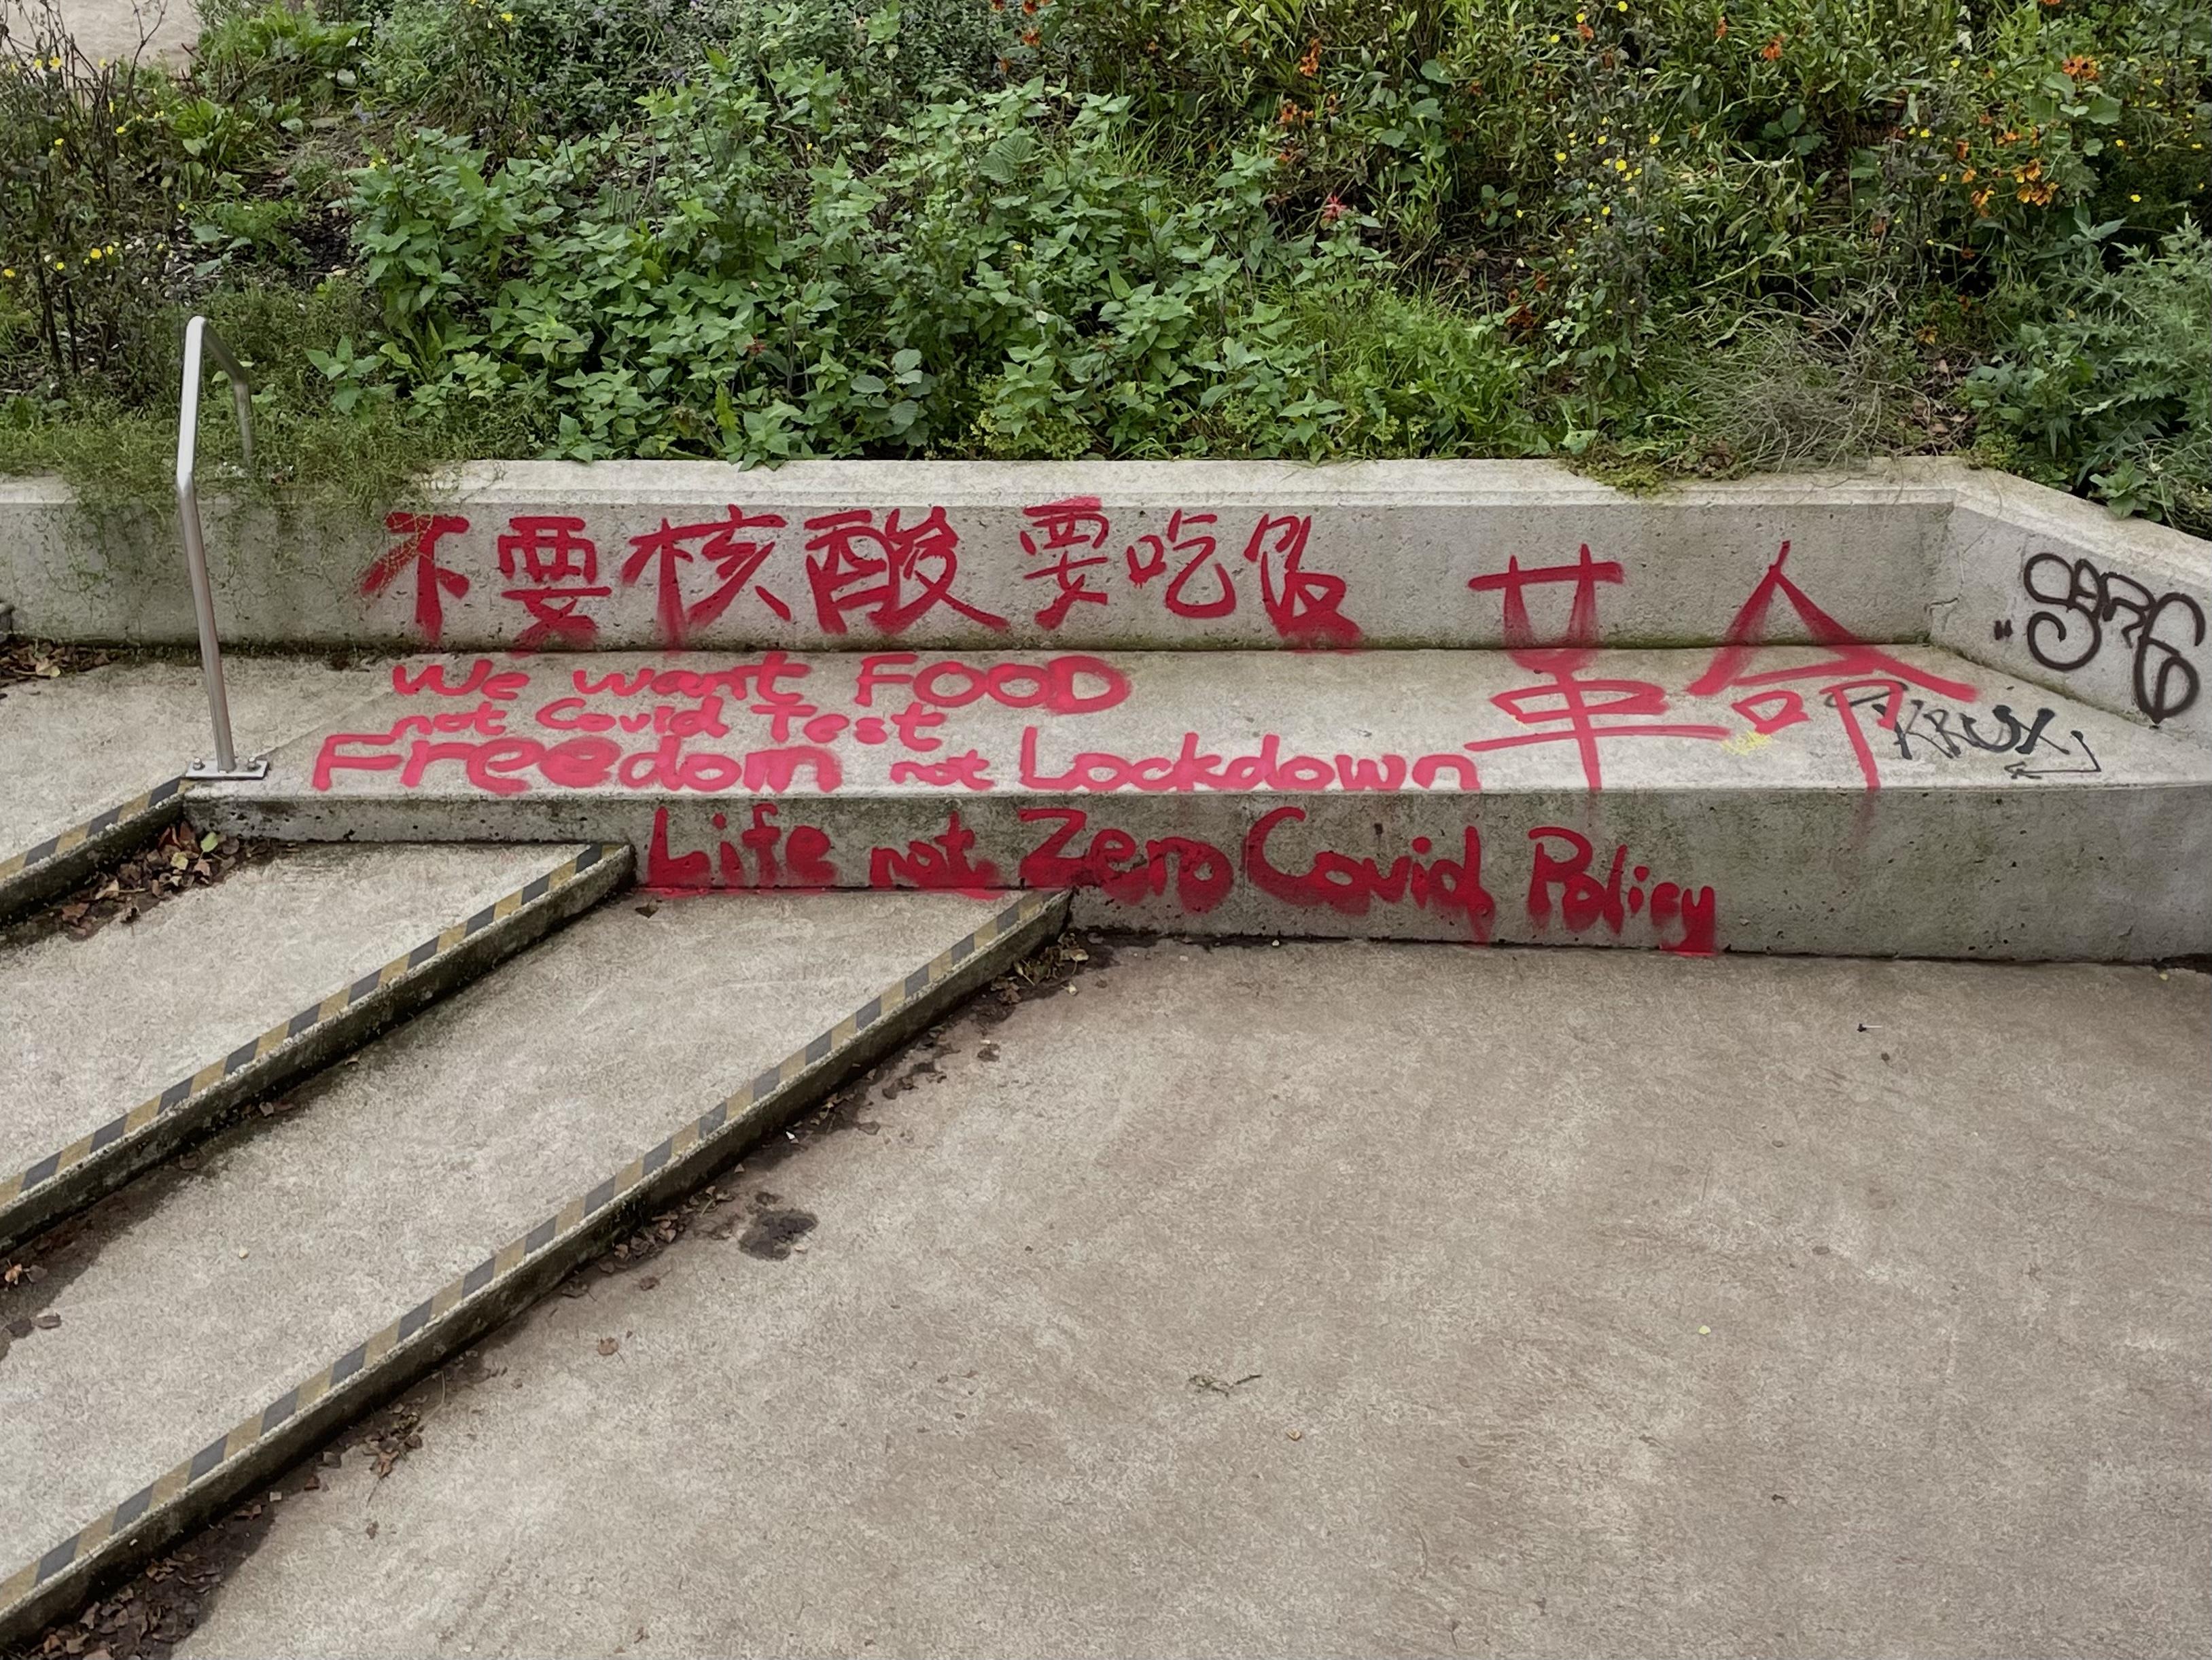 不要核酸 要吃饭
革命
We want FOOD
not Covid Test
Freedom not Lockdown
Life not Zero Covid Policy
KRUX